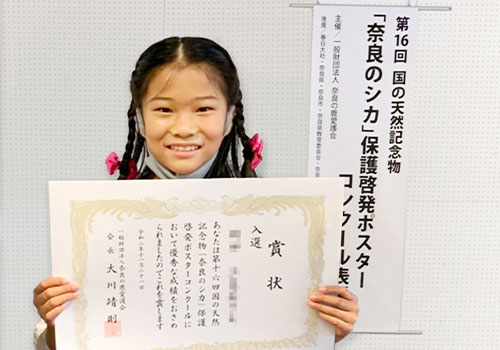 第16回 国の天然記念物
「奈良のシカ」保護啓発ポスター
コンクール表
主催／一般財団法人 奈良の鹿愛護会
後援／春日大社・奈良県・奈良市・奈良県教育委員会・
賞状
入選
あなたは第十六回国の天然
記念物「奈良のシカ」保護
啓発ポスターコンクールに
おいて優秀な成績をおさめ
られましたのでこれを賞します
令和二年十一月二十一日
一般財団法人奈良の鹿愛護会
会長 大川靖則